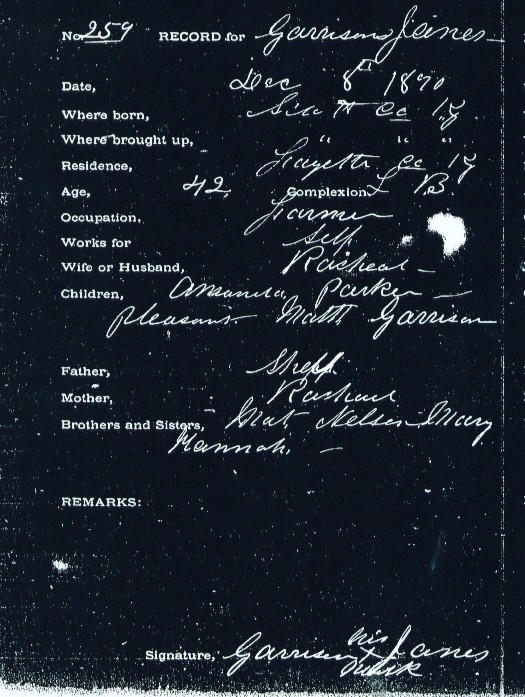 No. 259 RECORD for Garrison Janes
Date, Dec 8th 1890
Where born, Co Ky.
Where brought up, " " "
Residence, Fayette Co Ky
Age, 42, Complexion, L B
Occupation, Farmer
Works for Self
Wife or Husband, Racheal
Children, Amanda Parker
pleasant Matt Garrison
Father, Shepp
Mother, Rachael
Brothers and Sisters, Mat Nelson Mary
Hannah.
REMARKS:
his
Signature, Garrison X Janes
mark